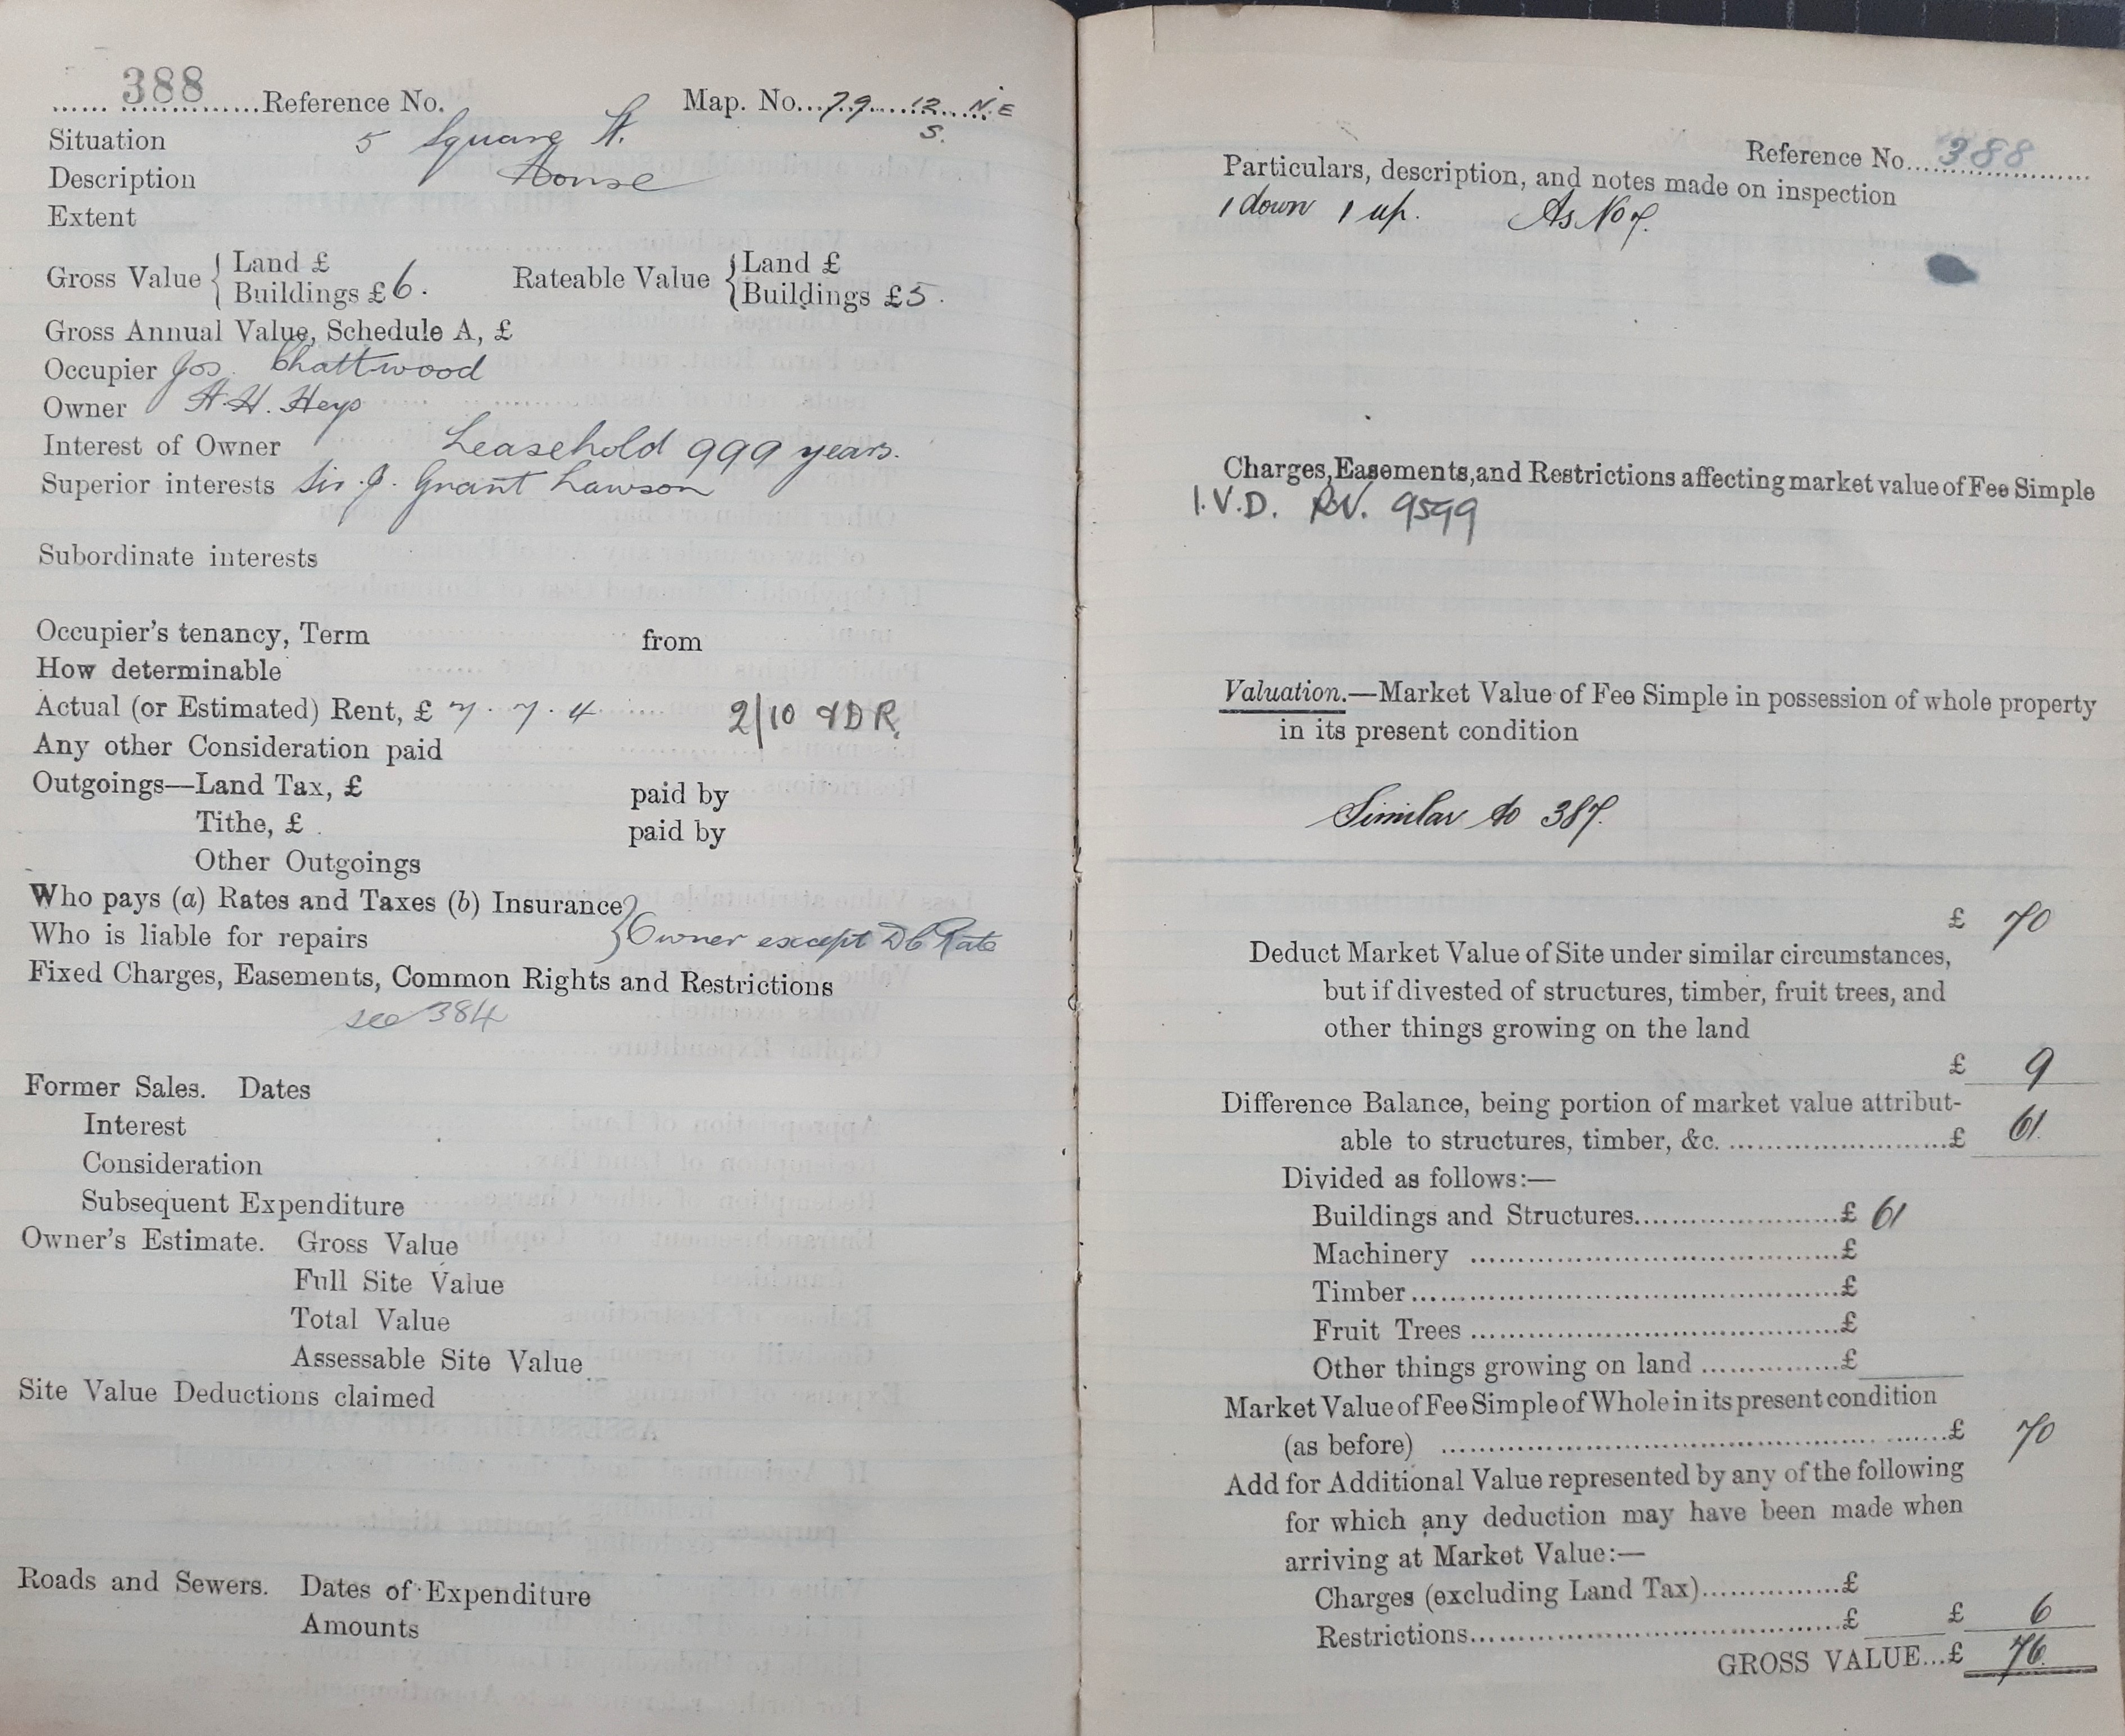 388 Reference No. Map. No. 79 12 N.E
S.
Situation 5 Square St.
Description House
Extent
Gross Value { Land £
Buildings £ 6. Rateable Value { Land £
Buildings £ 5.
Gross Annual Value, Schedule A, £
Occupier Jos. Chattwood
Owner H. H. Heys
Interest of Owner Leasehold 999 years.
Superior interests Sir J. Grant Lawson
Subordinate interests
Occupier's tenancy, Term from
How determinable
Actual (or Estimated) Rent, £ 7 . 7 . 4 2/10 & D R.
Any other Consideration paid
Outgoings—Land Tax, £ paid by
Tithe, £ paid by
Other Outgoings
Who pays (a) Rates and Taxes (b) Insurance
Who is liable for repairs } Owner except Dt Rate
Fixed Charges, Easements, Common Rights and Restrictions
see 384
Former Sales. Dates
Interest
Consideration
Subsequent Expenditure
Owner's Estimate. Gross Value
Full Site Value
Total Value
Assessable Site Value
Site Value Deductions claimed
Roads and Sewers. Dates of Expenditure
Amounts
Reference No. 388
Particulars, description, and notes made on inspection
1 down 1 up. As No 7.
Charges, Easements, and Restrictions affecting market value of Fee Simple
I.V.D. R.V. 9599
Valuation.—Market Value of Fee Simple in possession of whole property
in its present condition
Similar to 387.
£ 70
Deduct Market Value of Site under similar circumstances,
but if divested of structures, timber, fruit trees, and
other things growing on the land
£ 9
Difference Balance, being portion of market value attribut-
able to structures, timber, &c. £ 61
Divided as follows:—
Buildings and Structures £ 61
Machinery £
Timber £
Fruit Trees £
Other things growing on land £
Market Value of Fee Simple of Whole in its present condition
(as before) £ 70
Add for Additional Value represented by any of the following
for which any deduction may have been made when
arriving at Market Value:—
Charges (excluding Land Tax) £
Restrictions £ £ 6
GROSS VALUE...£ 76